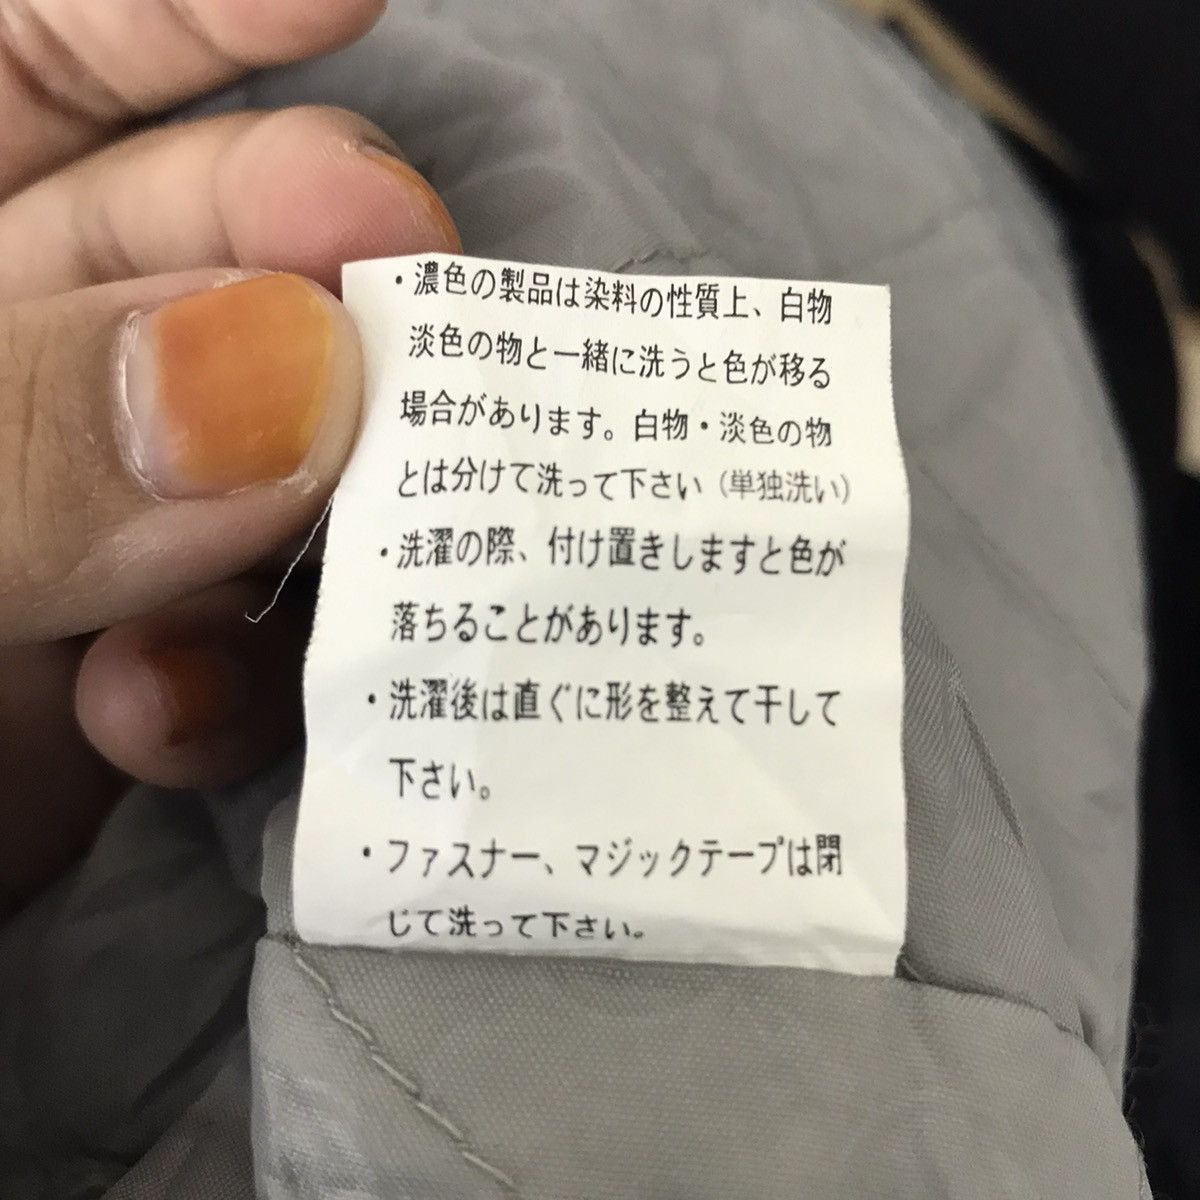 ・濃色の製品は染料の性質上、白物
淡色の物と一緒に洗うと色が移る
場合があります。白物・淡色の物
とは分けて洗って下さい（単独洗い）
・洗濯の際、付け置きしますと色が
落ちることがあります。
・洗濯後は直ぐに形を整えて干して
下さい。
・ファスナー、マジックテープは閉
じて洗って下さい。